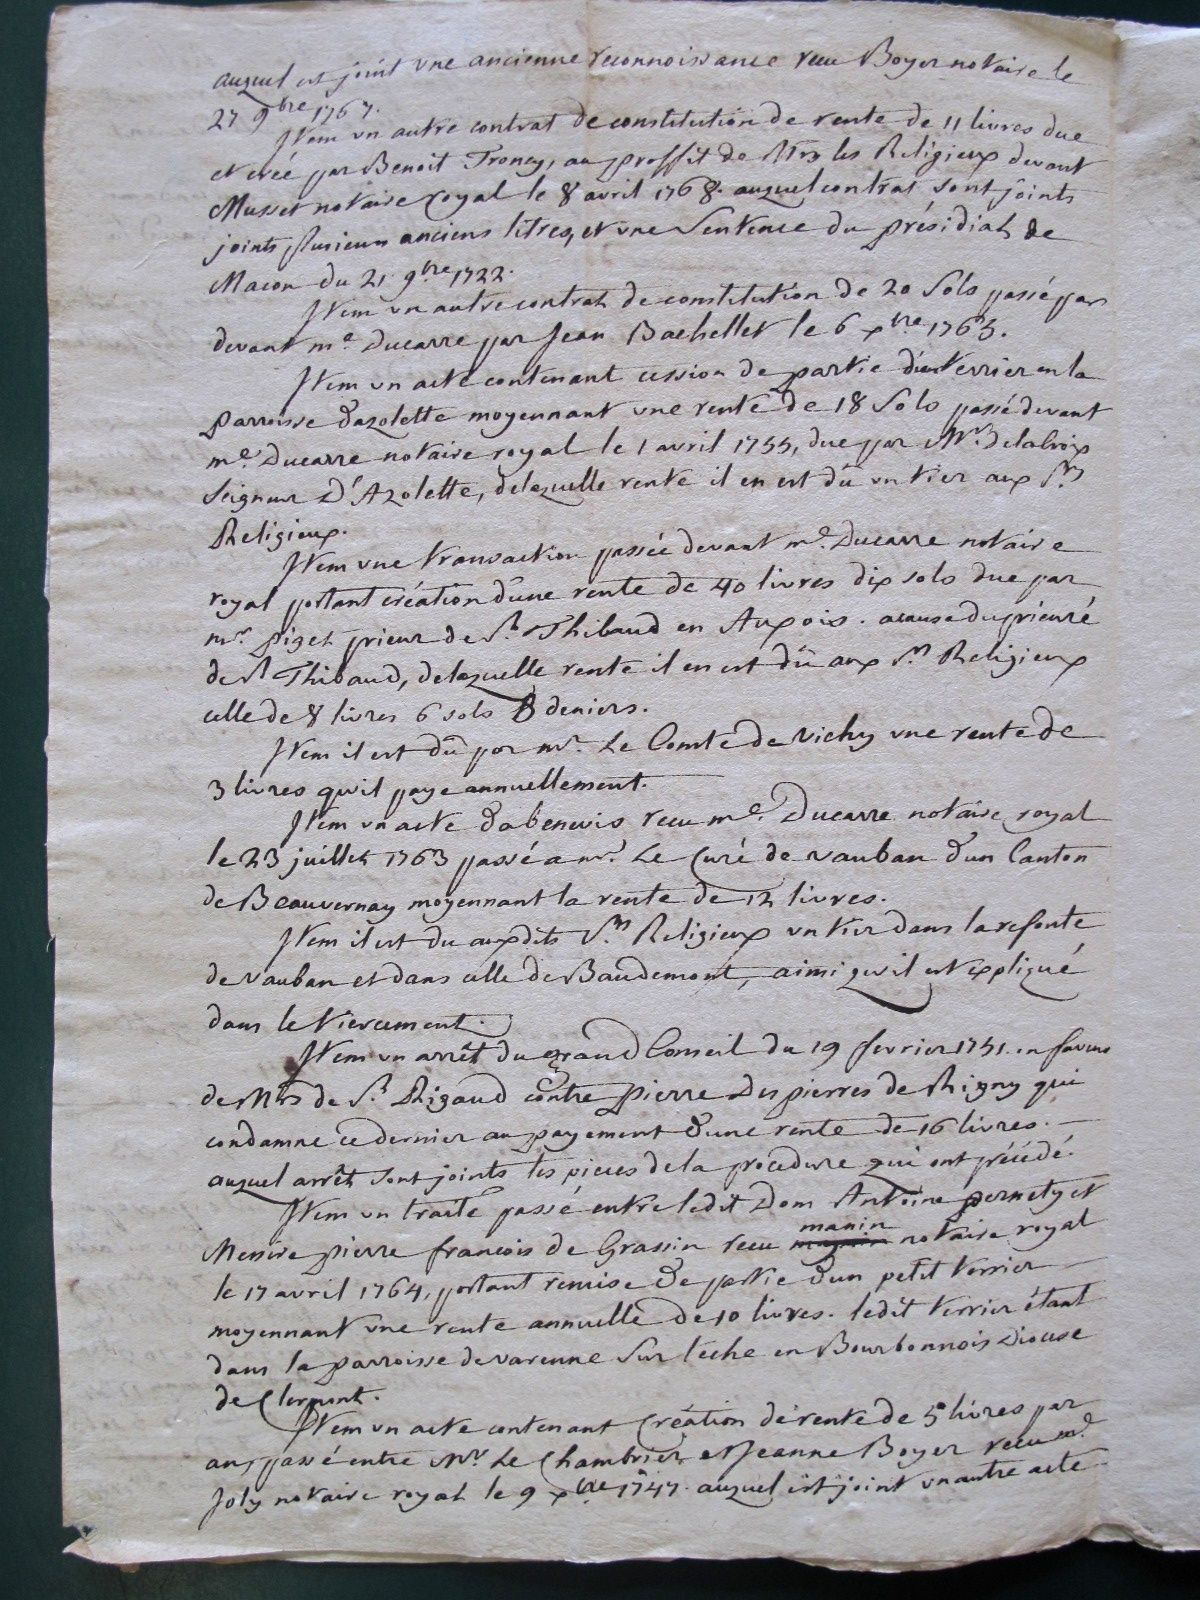 auquel est joint une ancienne reconnoissance recu Boyer notaire le
27 9bre 1767.
Item un autre contrat de constitution de rente de 11 livres due
et créé par Benoit Troncy, au proffit de Mrs les Religieux devant
Musset notaire royal le 8 avril 1768. auquel contrat sont joints
joints plusieurs anciens titres, et une Sentence du présidial de
Macon du 21 9bre 1722.
Item un autre contrat de constitution de 20 sols passé par
devant me. Ducarre par Jean Bachellet le 6 xbre 1763.
Item un acte contenant cession de partie d'un terrier en la
parroisse d'azolette moyennant une rente de 18 sols passé devant
me. Ducarre notaire royal le 1 avril 1755, due par Mr Delacroix
Seigneur D'Azolette, delaquelle rente il en est dû un tier aux Srs
Religieux.
Item une transaction passée devant me. Ducarre notaire
royal portant création d'une rente de 40 livres dix sols due par
mr. piget prieur de St Thibaud en Auxois. acause du prieuré
de St Thibaud, delaquelle rente il en est dû aux Srs Religieux
celle de 8 livres 6 sols 8 deniers.
Item il est dû par mr. Le Comte de Vichy une rente de
3 livres qu'il paye annuellement.
Item un acte d'abenevis recu me. Ducarre notaire royal
le 23 juillet 1763 passé a mr. Le Curé de vauban d'un Canton
de Beauvernay moyennant la rente de 12 livres.
Item il est du auxdits Srs Religieux un tier dans la refonte
de vauban et dans celle de Baudemont, ainsi qu'il est expliqué
dans le tiercement.
Item un arrêt du grand Conseil du 19 fevrier 1751. en faveur
de Mrs de St Rigaud contre pierre Des pierres de Rigny qui
condamne ce dernier au payement d'une rente de 16 livres.
auquel arrêt sont joints les pieces de la procedure qui ont précédé.
Item un traité passé entre ledit Dom Antoine pernety et
Messire pierre francois de Grassin recu manin notaire royal
le 17 avril 1764, portant remise de partie d'un petit terrier
moyennant une rente annuelle de 10 livres. ledit terrier étant
dans la parroisse de varenne sur teche en Bourbonnois Diocese
de Clermont.
Item un acte contenant Création de rente de 5 livres par
an, passé entre Mr Le Chambrier et Jeanne Boyer recu me
Joly notaire royal le 9 xbre 1747. auquel est joint un autre acte